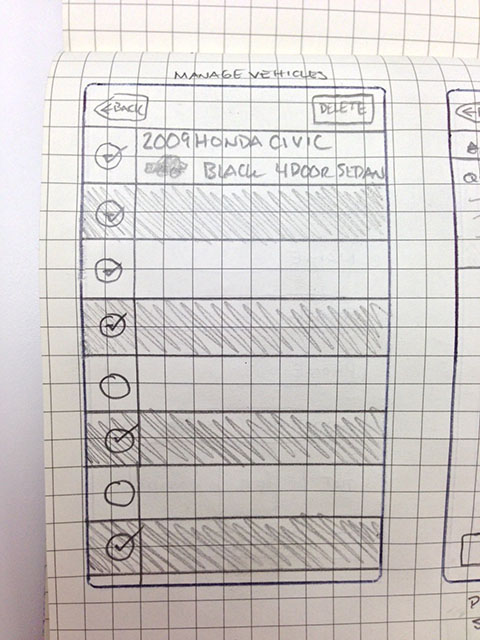 MANAGE VEHICLES
BACK
DELETE
2009 HONDA CIVIC
BLACK 4DOOR SEDAN